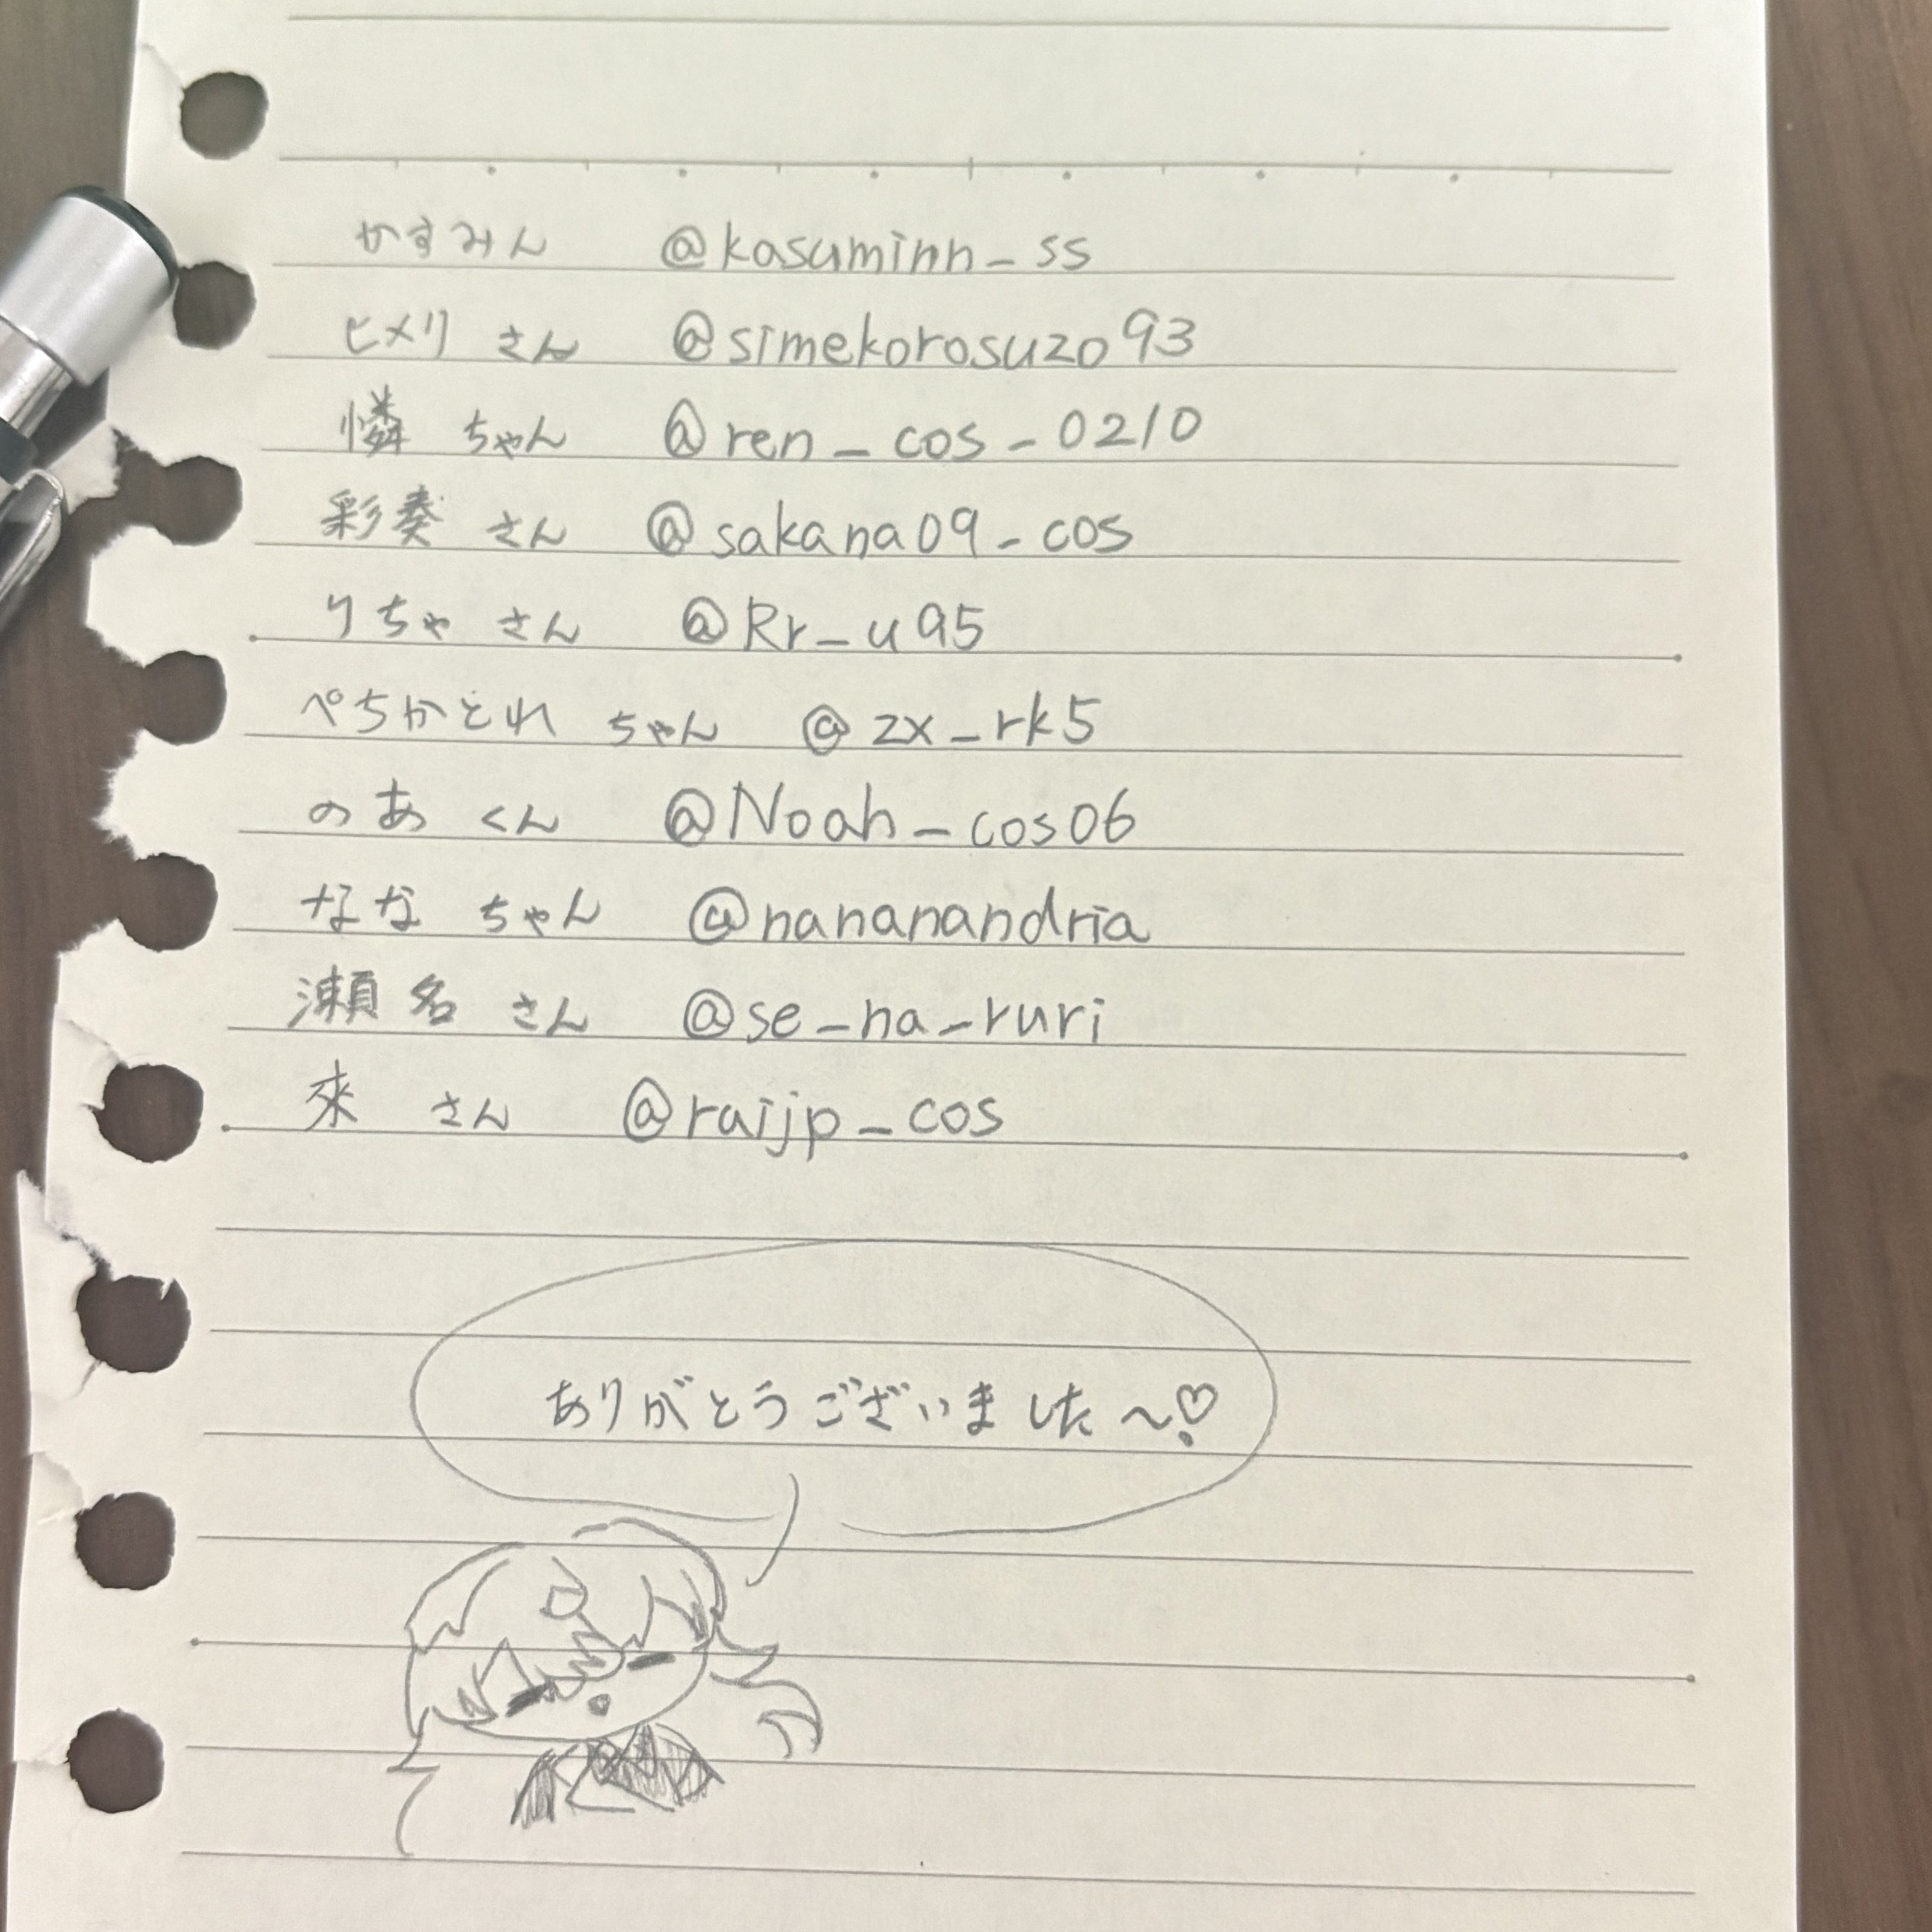 かすみん @kasuminn_ss
ヒメリ さん @simekorosuzo93
憐 ちゃん @ren_cos_0210
彩奏 さん @sakana09_cos
りちゃ さん @Rr_u95
ぺちかとれ ちゃん @zx_rk5
のあ くん @Noah_cos06
なな ちゃん @nananandria
瀬名 さん @se_na_ruri
來 さん @raijp_cos
ありがとうございました〜♡